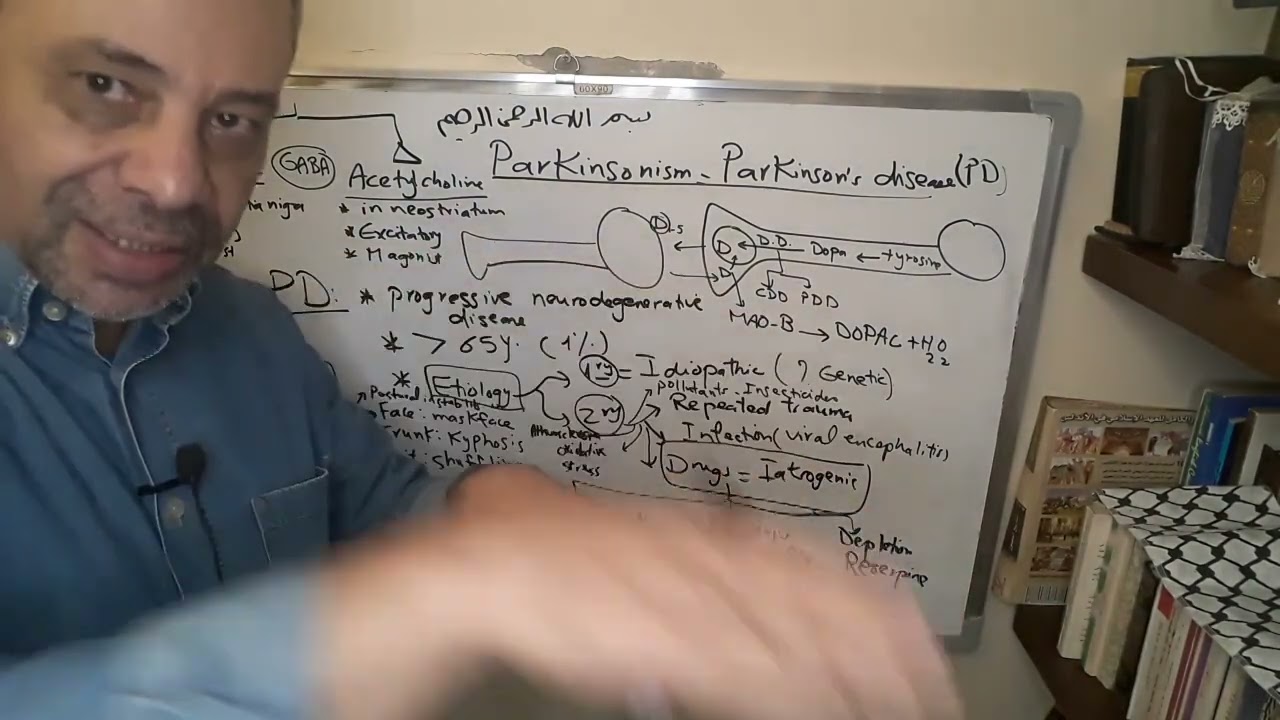 60X90
بسم الله الرحمن الرحيم
Parkinsonism - Parkinson's disease (PD)
GABA
Acetylcholine
* in neostriatum
* Excitatory
D1-5
D
D.D.
Dopa
tyrosine
D
CDD PDD
MAO-B → DOPAC + H2O2
PD: * progressive neurodegenerative
disease
* > 65y. (1%)
* Etiology
1ry = Idiopathic (? Genetic)
pollutants - Insecticides
2ry
Repeated trauma
Infection (viral encephalitis)
Drugs = Iatrogenic
Postural instability
Face: maskface
Trunk: Kyphosis
oxidative
stress
Depletion
Reserpine